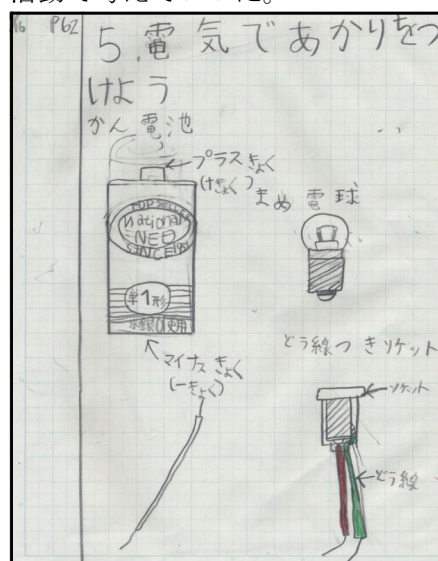 P62
5.電気であかりをつ
けよう
かん電池
プラスきょく
まめ電球
TOP SELLER
National
NEO
SINCE
単1形
水銀0使用
マイナスきょく
(ーきょく)
どう線つきソケット
ソケット
どう線